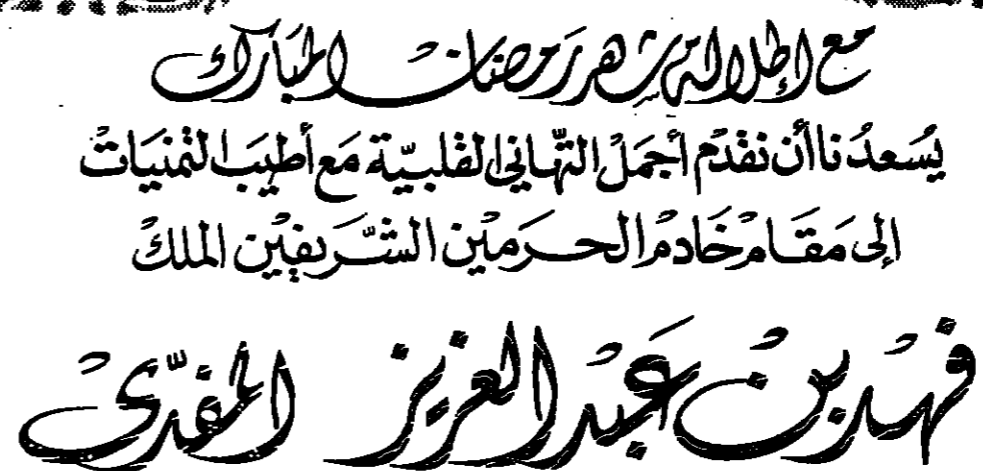 مع إطلالة شهر رمضان المبارك
يسعدنا أن نقدم أجمل التهاني القلبية مع أطيب التمنيات
إلى مقام خادم الحرمين الشريفين الملك
فهد بن عبد العزيز المفدى